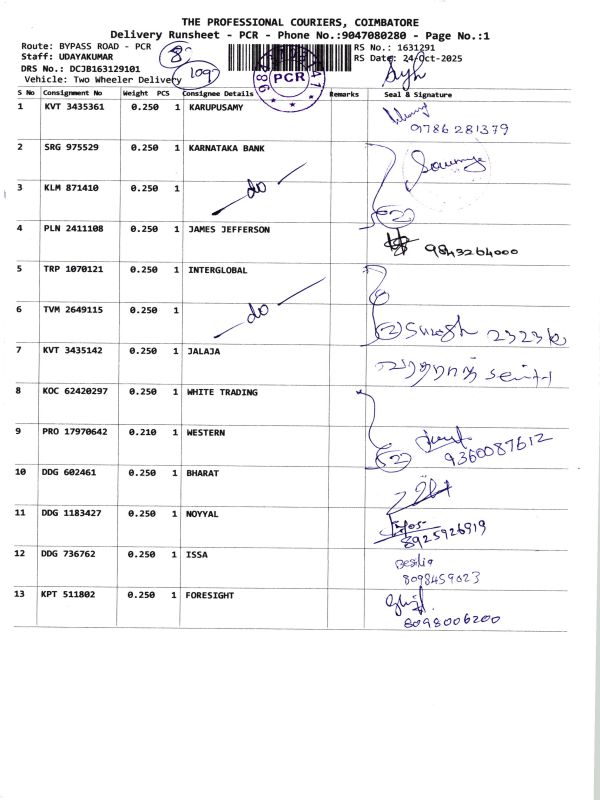 THE PROFESSIONAL COURIERS, COIMBATORE
Delivery Runsheet - PCR - Phone No.:9047080280 - Page No.:1
Route: BYPASS ROAD - PCR 8 RS No.: 1631291
Staff: UDAYAKUMAR RS Date: 24-Oct-2025
DRS No.: DCJB163129101
Vehicle: Two Wheeler Delivery 109 PCR
S No Consignment No Weight PCS Consignee Details Remarks Seal & Signature
1 KVT 3435361 0.250 1 KARUPUSAMY
9786281379
2 SRG 975529 0.250 1 KARNATAKA BANK Sowmya
3 KLM 871410 0.250 1 do
2
4 PLN 2411108 0.250 1 JAMES JEFFERSON
9843264000
5 TRP 1070121 0.250 1 INTERGLOBAL
6 TVM 2649115 0.250 1 do
2 Suresh
7 KVT 3435142 0.250 1 JALAJA
8 KOC 62420297 0.250 1 WHITE TRADING
9 PRO 17970642 0.210 1 WESTERN
2 9360087612
10 DDG 602461 0.250 1 BHARAT
11 DDG 1183427 0.250 1 NOYYAL
8925926919
12 DDG 736762 0.250 1 ISSA
8098459023
13 KPT 511802 0.250 1 FORESIGHT
8098006200